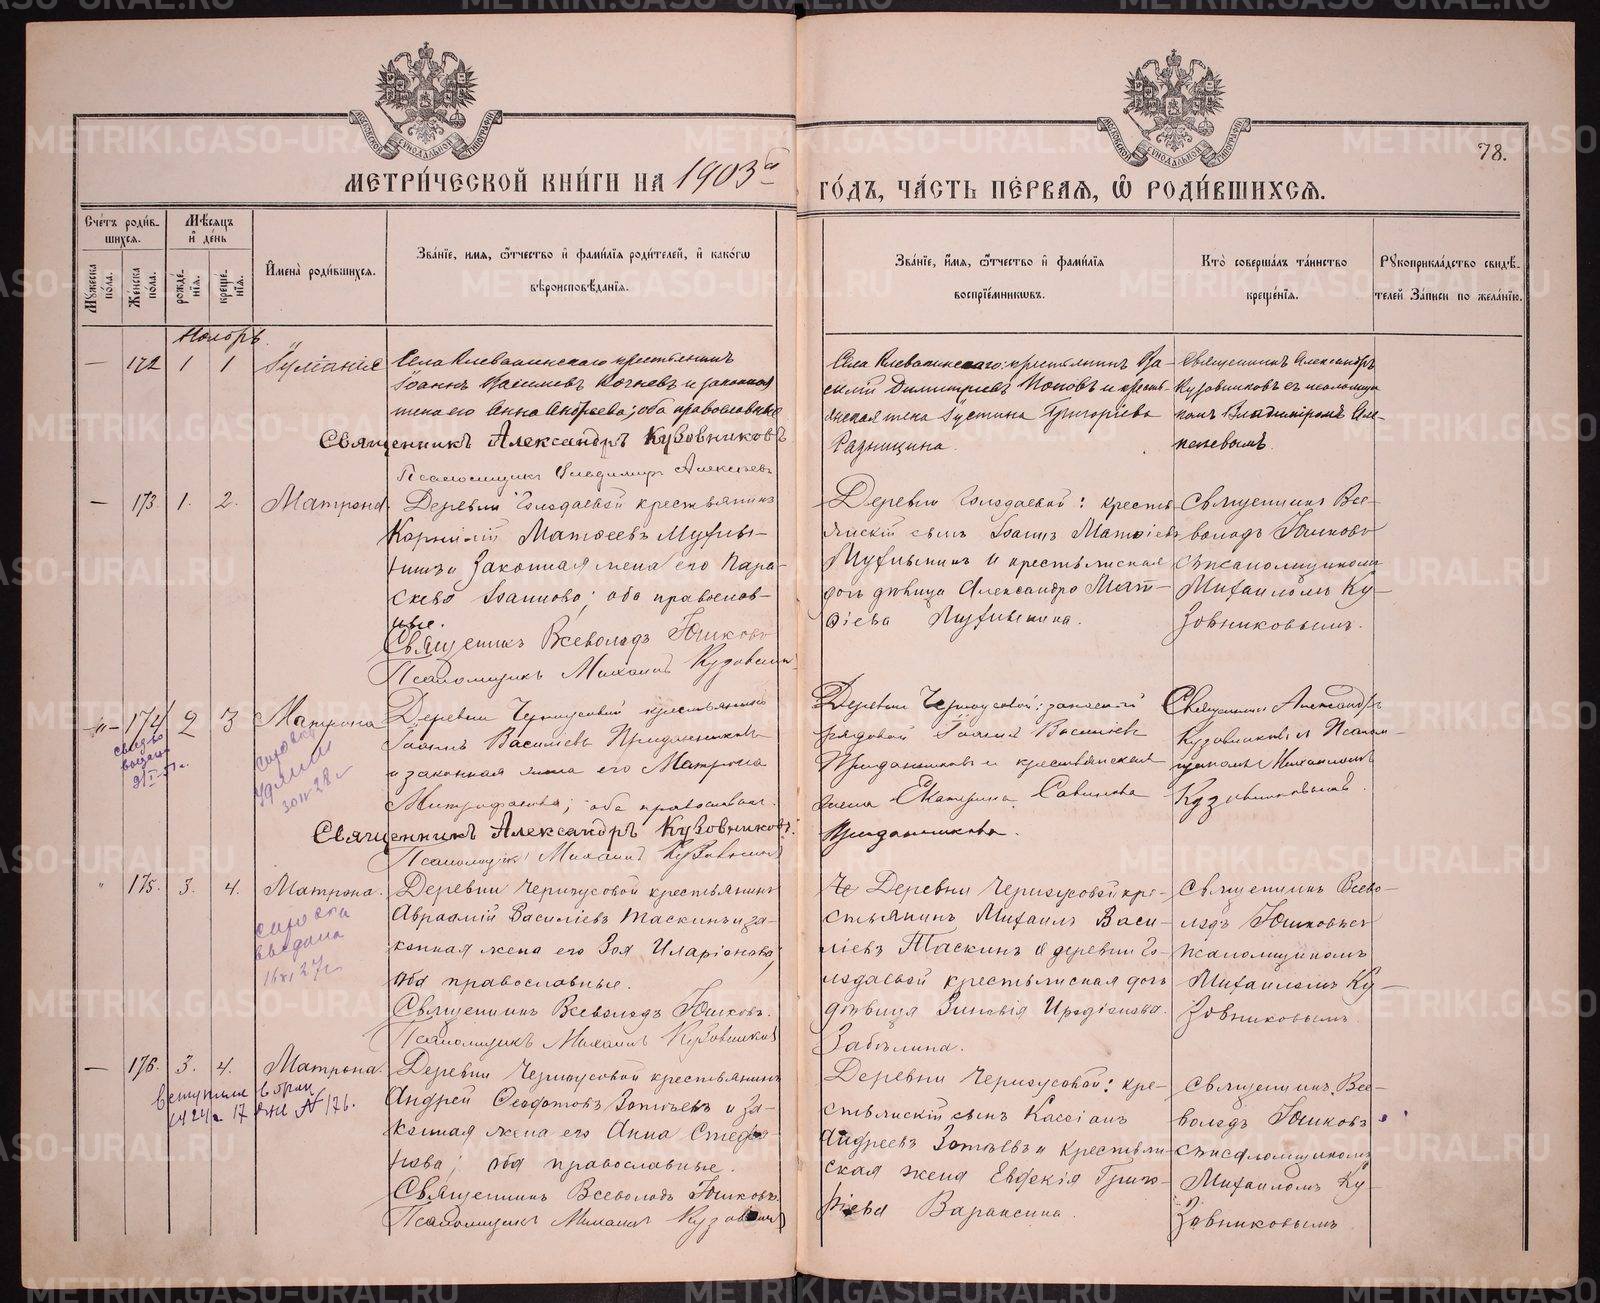 МЕТРИ́ЧЕСКОЙ КНИ́ГИ НА 1903й ГО́ДЪ, ЧА́СТЬ ПЕ́РВАЯ, Ѽ РОДИ́ВШИХСѦ.
78.
МОСКОВСКОЙ СѴНОДАЛЬНОЙ ТИПОГРАФІИ
МОСКОВСКОЙ СѴНОДАЛЬНОЙ ТИПОГРАФІИ
Сче́тъ роди́в-
шихсѧ.
Мѣ́сяцъ
и де́нь
Му́жеска
по́ла.
Же́нска
по́ла.
рожде́-
нїѧ.
креще́-
нїѧ.
Имена̀ роди́вшихсѧ.
Зва́нїе, имѧ, ѻ҆тчество и фами́лїѧ роди́телей, и како́гѡ
вѣроисповѣ́данїѧ.
Зва́нїе, и́мѧ, ѻ҆́тчество и фами́лїѧ
воспрїе́мникѡвъ.
Кто̀ соверша́лъ та́инство
креще́нїѧ.
Рꙋкоприкла́дство свидѣ́-
телей За́писи по жела́нїю.
Ноябрь.
— 172 1 1 Іуліанія
Села Клевакинскаго крестьянинъ
Іоаннъ Васильевъ Кочневъ и законная
жена его Анна Андреева; оба православные
Священникъ Александръ Кузовниковъ
Псаломщикъ Владимиръ Алексѣевъ
Села Клевакинскаго: крестьянинъ Ва-
силій Димитріевъ Поповъ и кресть-
янская жена Іустина Григоріева
Священникъ Александръ
Кузовниковъ съ псаломщи-
комъ Владиміромъ Але-
— 173. 1. 2. Матрона
Деревни Голодаевой крестьянинъ
Корнилій Матѳеевъ
и Законная жена его Пара-
скева Іоаннова; оба православ-
ные.
Священникъ Всеволодъ Юшковъ
Псаломщикъ Михаилъ Кузовник
Деревни Голодаевой: кресть-
янскій сынъ Іоаннъ Матѳіевъ
и крестьянская
дочь дѣвица Александра Мат-
ѳіева
Священникъ Все-
володъ Юшковъ
съ псаломщикомъ
Михаиломъ Ку-
зовниковымъ.
174 2 3 Матрона
Деревни Черноусовой крестьянинъ
Іоаннъ Васильевъ Приданниковъ
и законная жена его Матрона
Митрофанова; оба православн.
Священникъ Александръ Кузовниковъ.
Псаломщикъ Михаилъ Кузовник
Деревни Черноусовой: запасный
рядовой Іоаннъ Васильевъ
Приданниковъ и крестьянская
жена Екатерина Саввинова
Приданникова.
Священникъ Александръ
Кузовниковъ и Псалом-
щикомъ Михаиломъ
Кузовниковымъ.
справка
" 175. 3. 4. Матрона.
Деревни Черноусовой крестьянинъ
Авраамій Василіевъ Таскинъ и за-
конная жена его Зоя Иларіонова,
оба православные.
Священникъ Всеволодъ Юшковъ.
Псаломщикъ Михаилъ Кузовников
Деревни Черноусовой кре-
стьянинъ Михаилъ Васи-
ліевъ Таскинъ и деревни Го-
лодаевой крестьянская дочь
дѣвица Зиновія Иродіонова
Забѣлина.
Священникъ Всево-
лодъ Юшковъ съ
псаломщикомъ
Михаиломъ Ку-
зовниковымъ
справка
выдана
— 176. 3. 4. Матрона.
Деревни Черноусовой крестьянинъ
Андрей Ѳеодотовъ Зотѣевъ и за-
конная жена его Анна Стефа-
нова; оба православные.
Священникъ Всеволодъ Юшковъ.
Псаломщикъ Михаилъ Кузовник
Деревни Черноусовой: кре-
стьянскій сынъ Кассіанъ
Андреевъ Зотѣевъ и крестьян-
ская жена Евдокія Григо-
ріева Вараксина.
Священникъ Все-
володъ Юшковъ
съ псаломщикомъ
Михаиломъ Ку-
зовниковымъ
вступила в брак
1924 г. 17 № 176.
METRIKI.GASO-URAL.RU